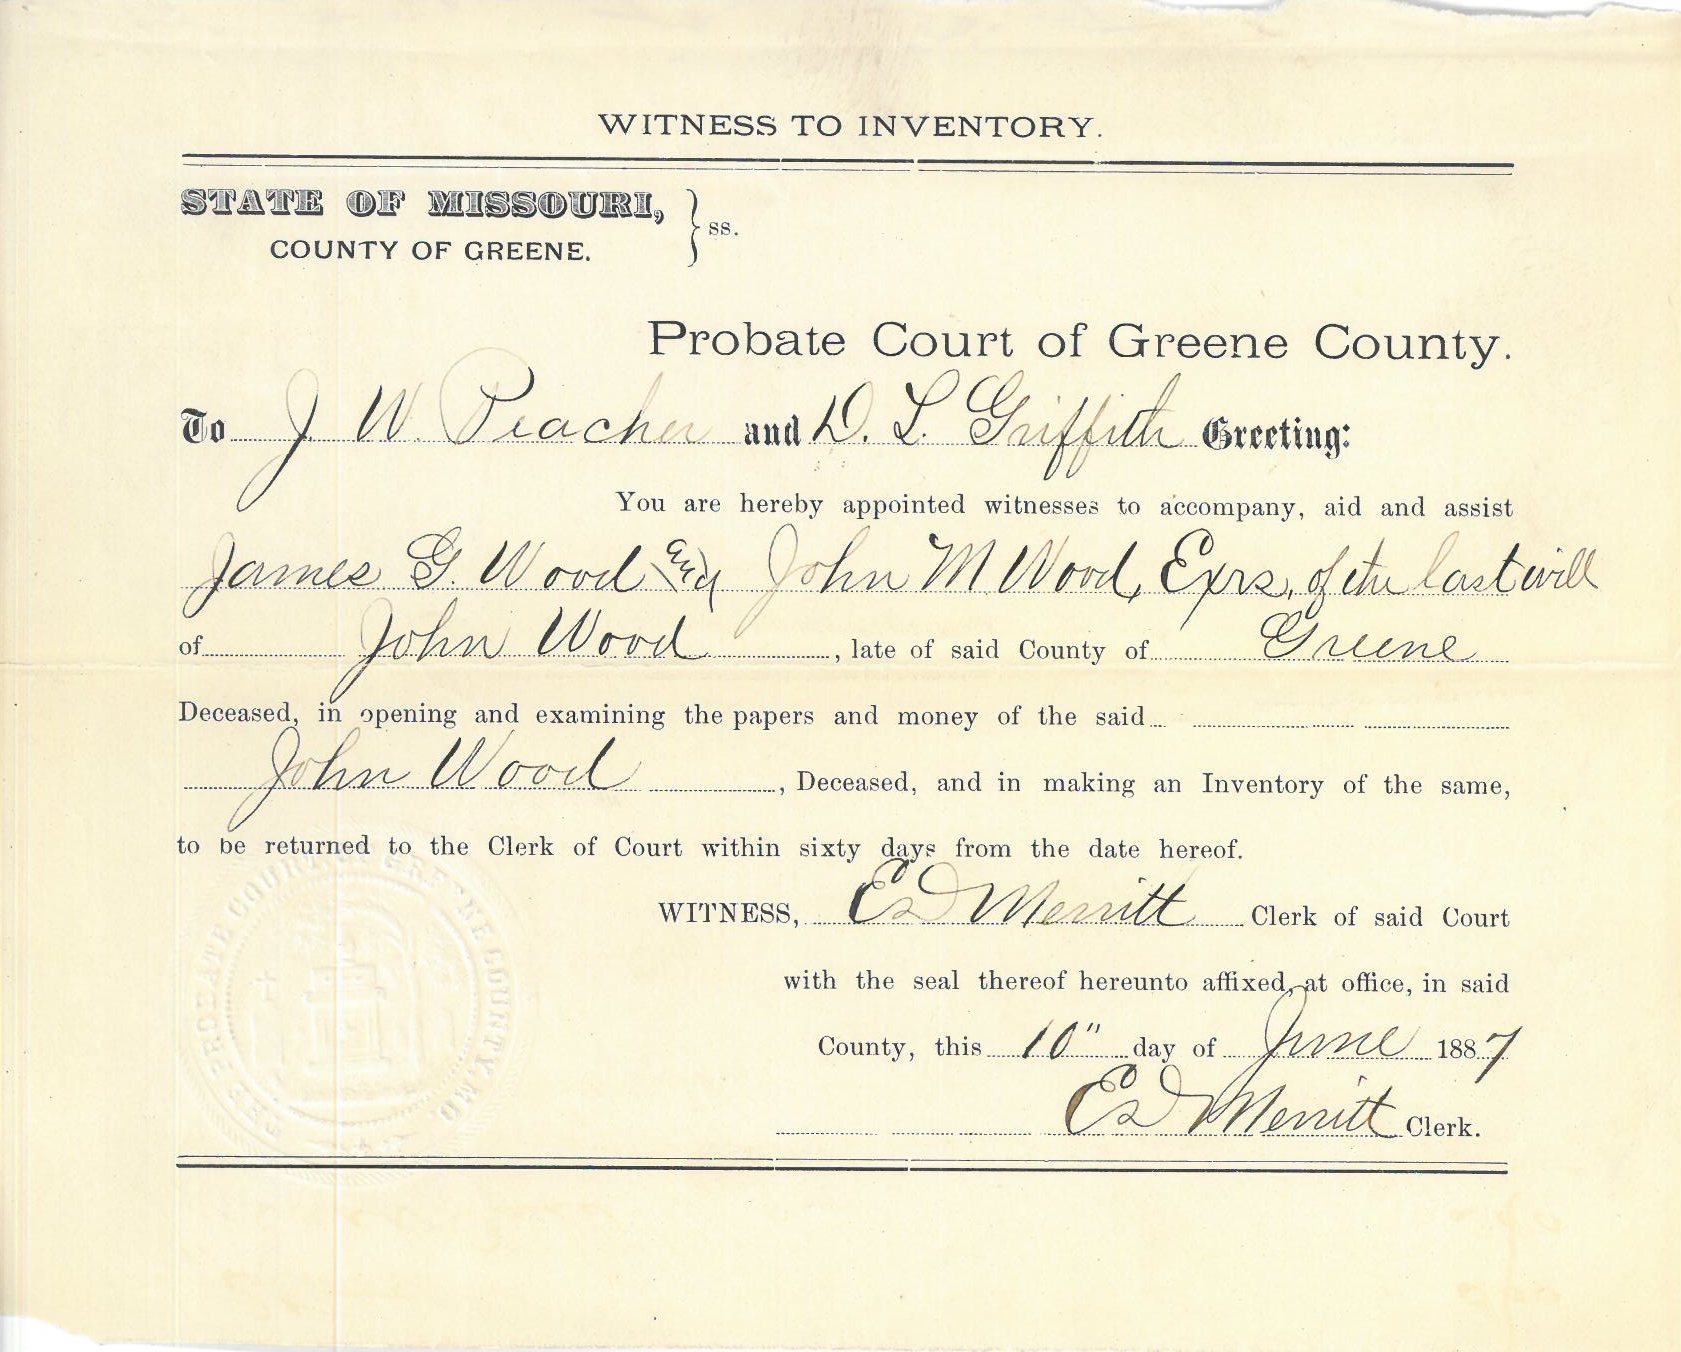 WITNESS TO INVENTORY.
STATE OF MISSOURI,
COUNTY OF GREENE.
} ss.
Probate Court of Greene County.
To J. W. Peacher and D. L. Griffith Greeting:
You are hereby appointed witnesses to accompany, aid and assist
James G. Wood and John M Wood, Exrs, of the last will
of John Wood, late of said County of Greene
Deceased, in opening and examining the papers and money of the said
John Wood, Deceased, and in making an Inventory of the same,
to be returned to the Clerk of Court within sixty days from the date hereof.
WITNESS, Ed Merritt Clerk of said Court
with the seal thereof hereunto affixed, at office, in said
County, this 10" day of June 1887
Ed Merritt Clerk.
THE PROBATE COURT OF GREENE COUNTY, MO.